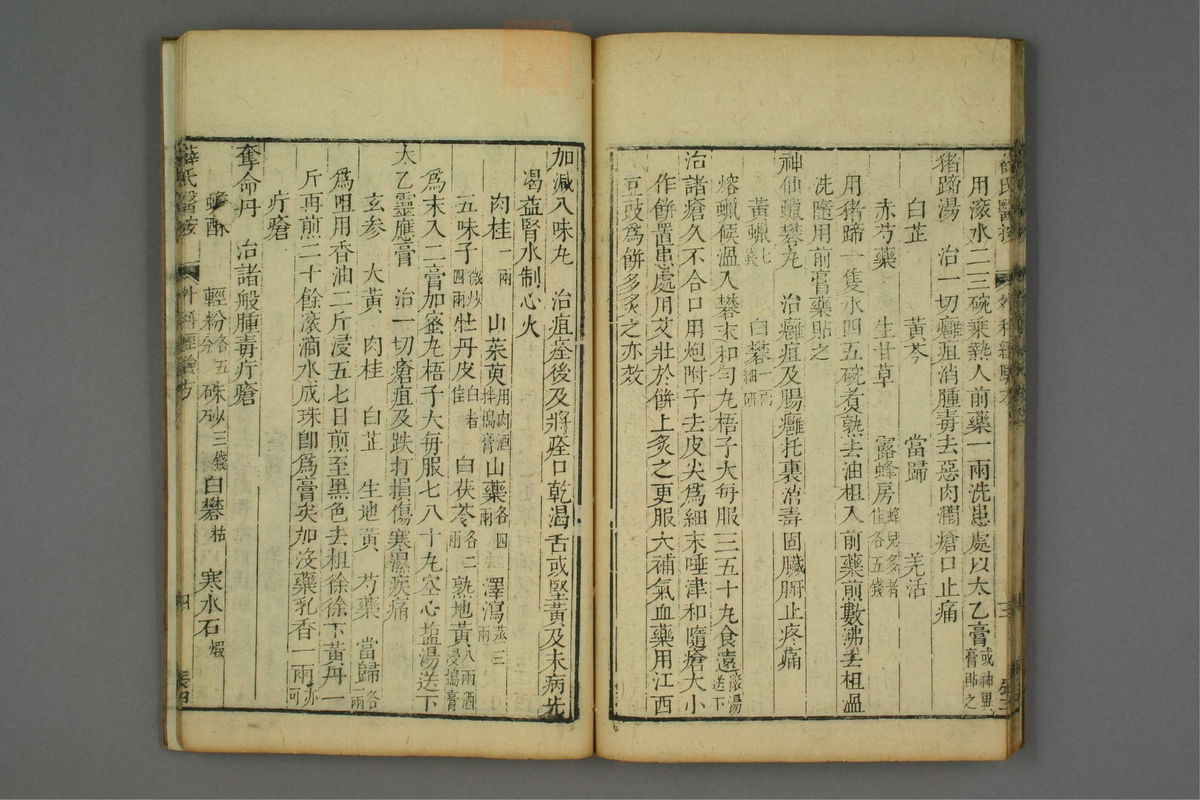 用滾水二三碗乘熱入前藥一兩洗患處以太乙膏或神異膏貼之
猪蹄湯　治一切癰疽消腫毒去惡肉潤瘡口止痛
白芷　黃芩　當歸　羌活
赤芍藥　生甘草　露蜂房蜂兒多者佳各五錢
用猪蹄一隻水四五碗煮熟去油柤入前藥煎數沸去柤溫
洗隨用前膏藥貼之
神仙蠟礬丸　治癰疽及腸癰托裏消毒固臟腑止疼痛
黃蠟七　白礬一兩細研
熔蠟候溫入礬末和勻丸梧子大每服三五十丸食遠滾湯送下
治諸瘡久不合口用炮附子去皮尖爲細末唾津和隨瘡大小
作餅置患處用艾壯於餅上炙之更服大補氣血藥用江西
豆豉爲餅多炙之亦效
加減八味丸　治疽痊後及將痊口乾渴舌或堅黃及未病先
渴益腎水制心火
肉桂一兩　山茱萸用肉酒拌搗膏山藥各四兩　澤瀉蒸三兩
五味子微炒四兩牡丹皮白者佳　白茯苓各二兩　熟地黃八兩酒浸搗膏
爲末入二膏加蜜丸梧子大每服七八十丸空心塩湯送下
太乙靈應膏　治一切瘡疽及跌打損傷寒濕疾痛
玄參　大黃　肉桂　白芷　生地黃　芍藥　當歸各一兩
爲咀用香油二斤浸五七日煎至黑色去柤徐徐下黃丹一
斤再煎二十餘滾滴水成珠即爲膏矣加沒藥乳香一兩亦可
疔瘡
奪命丹　治諸般腫毒疔瘡
蟾酥　輕粉各五分　硃砂三錢　白礬枯　寒水石煆
薛氏醫按　外科經驗方　四